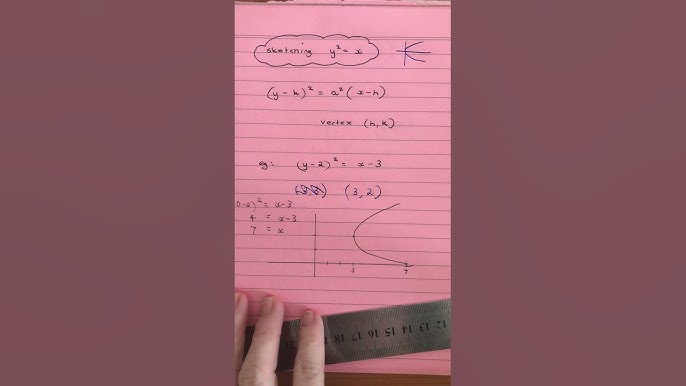 sketching y² = x
(y - k)² = a² (x - h)
vertex (h, k)
eg: (y - 2)² = x - 3
(3, 2)
0 - 2)² = x - 3
4 = x - 3
7 = x
3 7
12 13 14 15 16 17 18